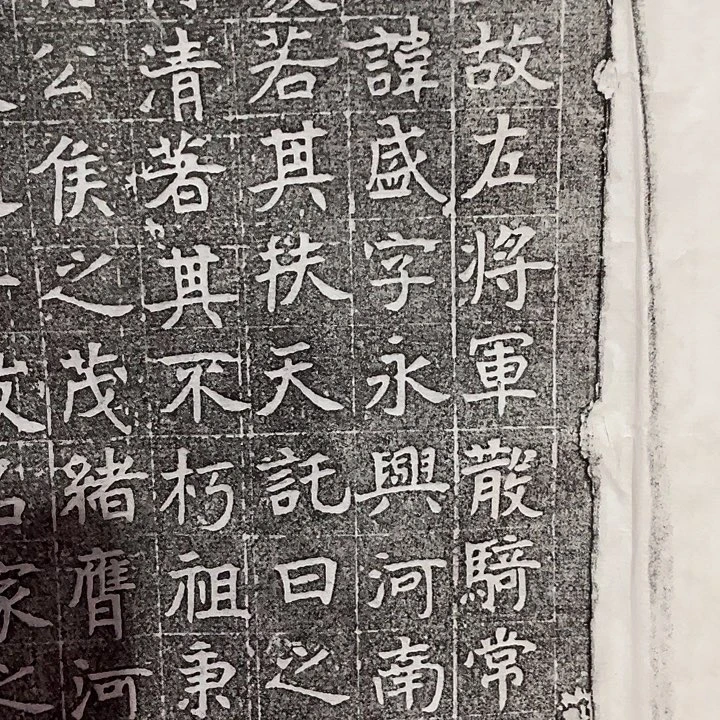 故左将軍散騎常
諱盛字永興河南
若其扶天託日之
清著其不朽祖秉
公侯之茂緒膺河
家之